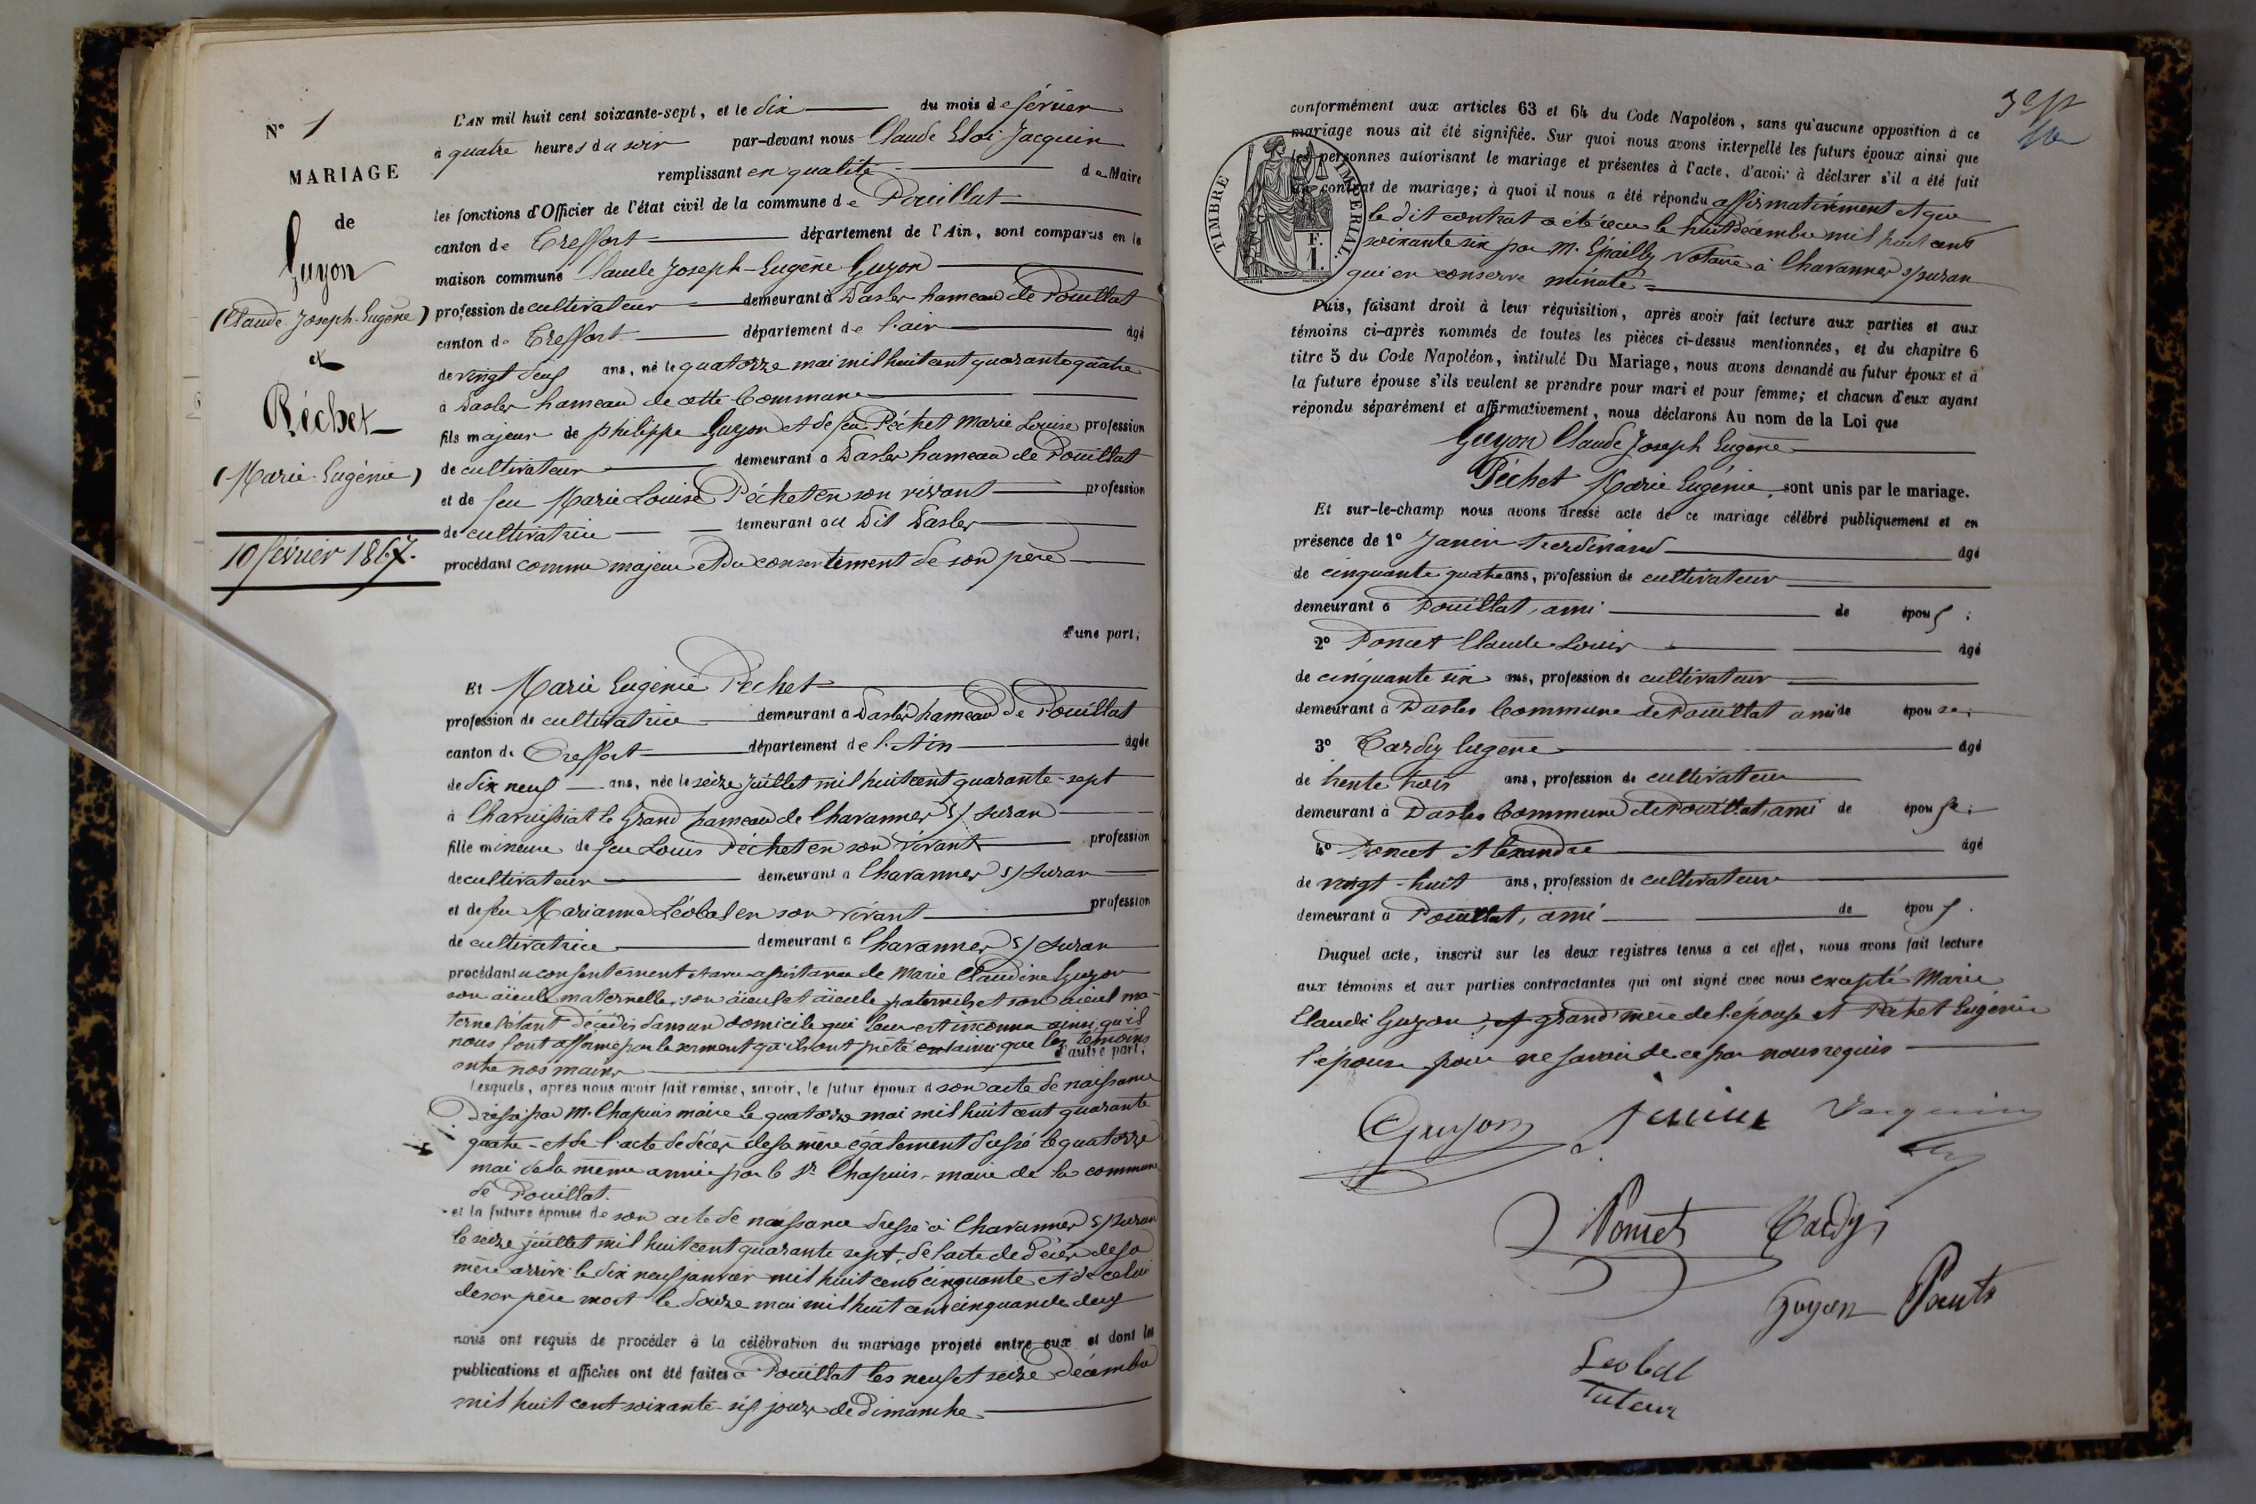 N° 1
MARIAGE
de
Guyon
(Claude Joseph-Eugène)
et
Péchet
(Marie-Eugénie)
10 février 1867.
L'AN mil huit cent soixante-sept, et le dix du mois de février
à quatre heures du soir par-devant nous Claude Eloi Jacquin
remplissant en qualité de Maire
les fonctions d'Officier de l'état civil de la commune de Pouillat
canton de Treffort département de l'Ain, sont comparus en la
maison commune Claude Joseph-Eugène Guyon
profession de cultivateur demeurant à Dasles hameau de Pouillat
canton de Treffort département de l'ain âgé
de vingt deux ans, né le quatorze mai mil huit cent quarante quatre
à Dasles hameau de cette Commune
fils majeur de philippe Guyon et de feu Péchet Marie Louise profession
de cultivateur demeurant à Dasles hameau de Pouillat
et de feu Marie Louise Péchet en son vivant profession
de cultivatrice demeurant au dit Dasles
procédant comme majeur et du consentement de son père
d'une part;
Et Marie Eugénie Péchet
profession de cultivatrice demeurant à Dasles hameau de Pouillat
canton de Treffort département de l'Ain âgée
de dix neuf ans, née le seize juillet mil huit cent quarante-sept
à Charnissiat le Grand hameau de Chavannes s/ Suran
fille mineure de feu Louis Péchet en son vivant profession
de cultivateur demeurant à Chavannes s/ Suran
et de feu Marianne Léobal en son vivant profession
de cultivatrice demeurant à Chavannes s/ Suran
procédant u consentement et avec assistance de Marie Claudine Guyon
son aïeule maternelle, son aïeul et aïeule paternels et son aïeul ma-
ternel étant décédés dans un domicile qui leur est inconnu ainsi qu'il
nous l'ont affirmé par le serment qu'ils ont prêté ainsi que les témoins
entre nos mains d'autre part;
Lesquels, après nous avoir fait remise, savoir, le futur époux d son acte de naissance
Dressé par M. Chapuis maire le quatorze mai mil huit cent quarante
quatre - et de l'acte de décès de sa mère également dressé le quatorze
mai de la même année par le Sr Chapuis, maire de la commune
de Pouillat.
et la future épouse de son acte de naissance dressé à Chavannes s/ Suran
le seize juillet mil huit cent quarante sept, de l'acte de décès de sa
mère arrivé le dix neuf janvier mil huit cent cinquante et de celui
de son père mort le douze mai mil huit cent cinquante deux
nous ont requis de procéder à la célébration du mariage projeté entre eux et dont les
publications et affiches ont été faites à Pouillat les neuf et seize Décembre
mil huit cent soixante-six jours de Dimanche
TIMBRE IMPERIAL.
conformément aux articles 63 et 64 du Code Napoléon, sans qu'aucune opposition à ce
mariage nous ait été signifiée. Sur quoi nous avons interpellé les futurs époux ainsi que
les personnes autorisant le mariage et présentes à l'acte, d'avoir à déclarer s'il a été fait
un contrat de mariage; à quoi il nous a été répondu affirmativement et que
le dit contrat a été reçu le huit Décembre mil huit cent
soixante six par M. Epailly Notaire à Chavannes s/ suran
qui en conserve minute
Puis, faisant droit à leur réquisition, après avoir fait lecture aux parties et aux
témoins ci-après nommés de toutes les pièces ci-dessus mentionnées, et du chapitre 6
titre 5 du Code Napoléon, intitulé Du Mariage, nous avons demandé au futur époux et à
la future épouse s'ils veulent se prendre pour mari et pour femme; et chacun d'eux ayant
répondu séparément et affirmativement, nous déclarons Au nom de la Loi que
Guyon Claude Joseph Eugène
Péchet Marie Eugénie, sont unis par le mariage.
Et sur-le-champ nous avons dressé acte de ce mariage célébré publiquement et en
présence de 1° Janin Ferdinand âgé
de cinquante quatre ans, profession de cultivateur
demeurant à Pouillat, ami de époux;
2° Poncet Claude-Louis âgé
de cinquante six ans, profession de cultivateur
demeurant à Dasles Commune de Pouillat ami de épouse;
3° Tardy Eugène âgé
de trente trois ans, profession de cultivateur
demeurant à Dasles Commune de Pouillat, ami de épouse;
4° Poncet Alexandre âgé
de vingt-huit ans, profession de cultivateur
demeurant à Pouillat, ami de époux.
Duquel acte, inscrit sur les deux registres tenus à cet effet, nous avons fait lecture
aux témoins et aux parties contractantes qui ont signé avec nous excepté Marie
Claude Guyon, grand'mère de l'épouse et Péchet Eugénie
l'épouse pour ne savoir de ce par nous requis
Guyon Janin Jacquin
Poncet Tardy
Guyon Poncet
Léobal
Tuteur